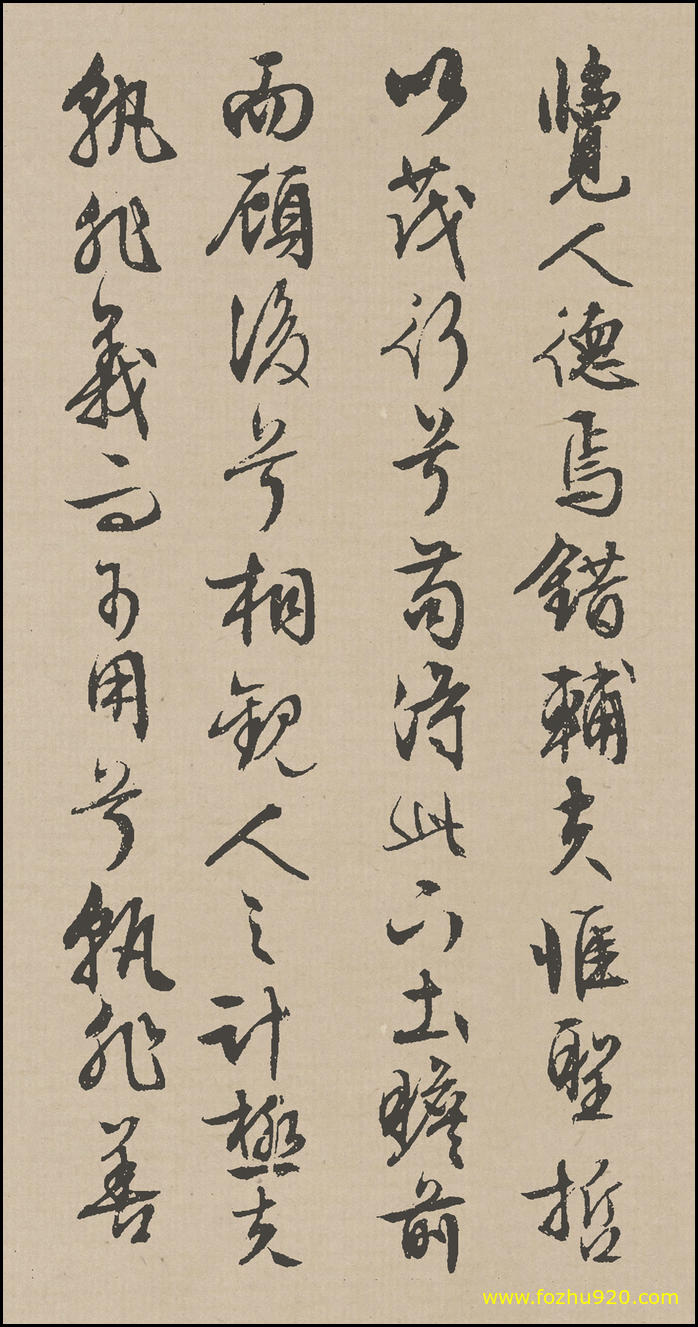 覽人德焉錯輔夫惟聖哲
以茂行兮苟得此下土瞻前
而顧後兮相觀人之計極夫
孰非義而可用兮孰非善
www.fozhu920.com